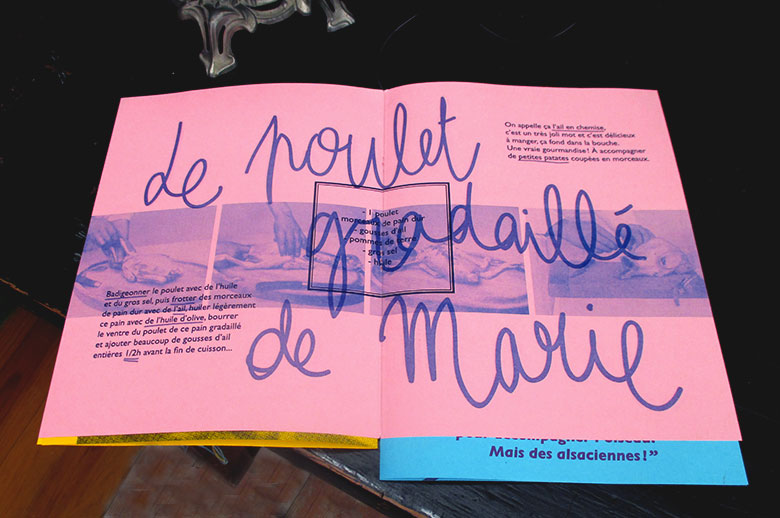 Le poulet
gradaillé
de Marie
On appelle ça l'ail en chemise,
c'est un très joli mot et c'est délicieux
à manger, ça fond dans la bouche.
Une vraie gourmandise! A accompagner
de petites patates coupées en morceaux.
- 1 poulet
- morceaux de pain dur
- gousses d'ail
- pommes de terre
- gros sel
- huile
Badigeonner le poulet avec de l'huile
et du gros sel, puis frotter des morceaux
de pain dur avec de l'ail, huiler légèrement
ce pain avec de l'huile d'olive, bourrer
le ventre du poulet de ce pain gradaillé
et ajouter beaucoup de gousses d'ail
entières 1/2h avant la fin de cuisson...
pour accompagner l'oiseau.
Mais des alsaciennes!”